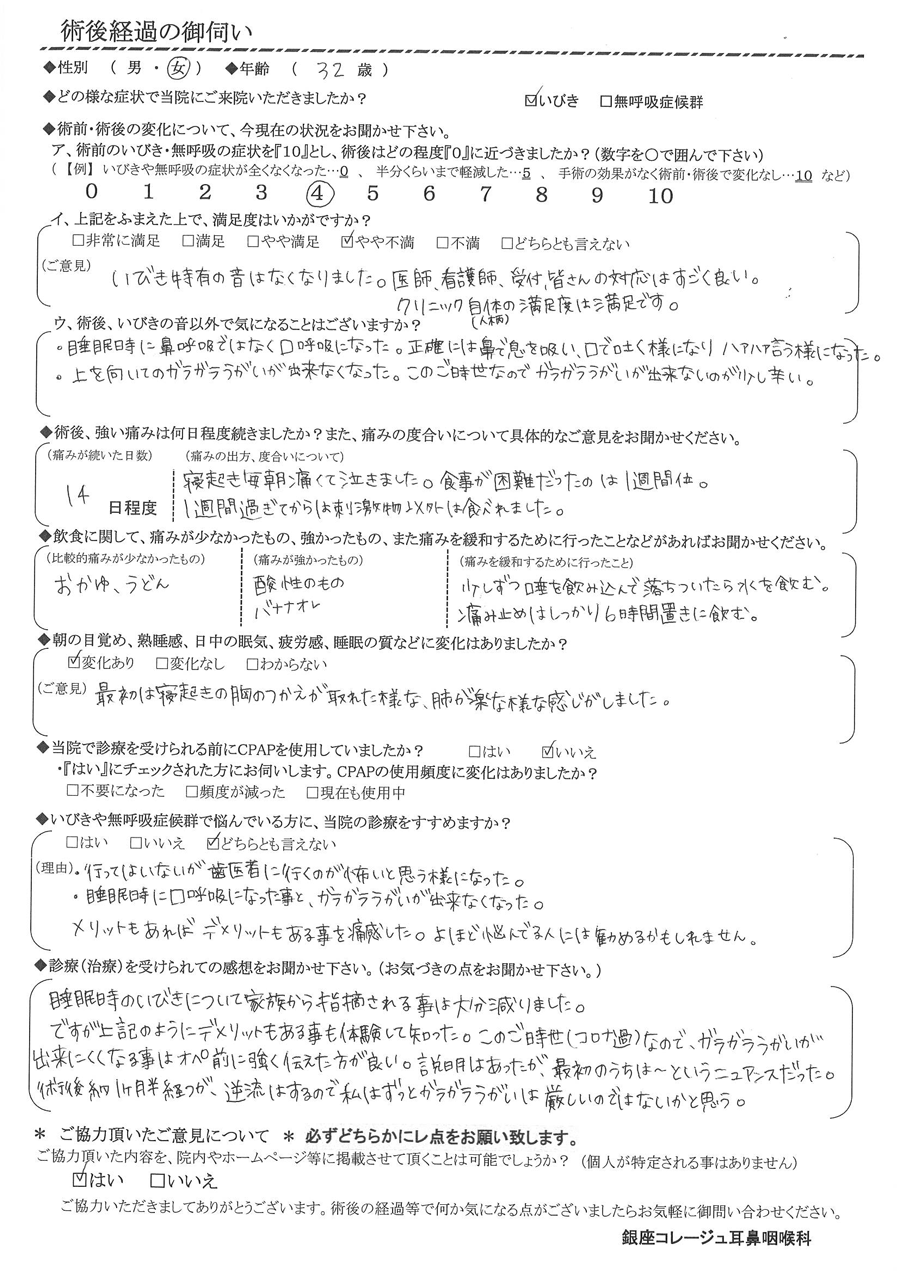 術後経過の御伺い
◆性別 （ 男 ・ 女 ） ◆年齢 （ 32 歳 ）
◆どの様な症状で当院にご来院いただきましたか？ ☑いびき □無呼吸症候群
◆術前・術後の変化について、今現在の状況をお聞かせ下さい。
ア、術前のいびき・無呼吸の症状を『10』とし、術後はどの程度『0』に近づきましたか？（数字を〇で囲んで下さい）
（ 【例】 いびきや無呼吸の症状が全くなくなった…0 、 半分くらいまで軽減した…5 、 手術の効果がなく術前・術後で変化なし…10 など）
0 1 2 3 ④ 5 6 7 8 9 10
イ、上記をふまえた上で、満足度はいかがですか？
□非常に満足 □満足 □やや満足 ☑やや不満 □不満 □どちらとも言えない
（ご意見） いびき特有の音はなくなりました。医師、看護師、受付、皆さんの対応はすごく良い。
クリニック自体の満足度は満足です。
（人柄）
ウ、術後、いびきの音以外で気になることはございますか？
・睡眠時に鼻呼吸ではなく口呼吸になった。正確には鼻で息を吸い、口で吐く様になり ハアハア言う様になった。
・上を向いてのガラガラうがいが出来なくなった。このご時世なので ガラガラうがいが出来ないのが少し辛い。
◆術後、強い痛みは何日程度続きましたか？また、痛みの度合いについて具体的なご意見をお聞かせください。
（痛みが続いた日数） （痛みの出方、度合いについて）
14 日程度 寝起き毎朝痛くて泣きました。食事が困難だったのは1週間位。
1週間過ぎてからは刺激物以外は食べれました。
◆飲食に関して、痛みが少なかったもの、強かったもの、また痛みを緩和するために行ったことなどがあればお聞かせください。
（比較的痛みが少なかったもの） （痛みが強かったもの） （痛みを緩和するために行ったこと）
おかゆ、うどん 酸性のもの 少しずつ唾を飲み込んで落ちついたら水を飲む。
バナナオレ 痛み止めはしっかり6時間置きに飲む。
◆朝の目覚め、熟睡感、日中の眠気、疲労感、睡眠の質などに変化はありましたか？
☑変化あり □変化なし □わからない
（ご意見） 最初は寝起きの胸のつかえが取れた様な、肺が楽な様な感じがしました。
◆当院で診療を受けられる前にCPAPを使用していましたか？ □はい ☑いいえ
・『はい』にチェックされた方にお伺いします。CPAPの使用頻度に変化はありましたか？
□不要になった □頻度が減った □現在も使用中
◆いびきや無呼吸症候群で悩んでいる方に、当院の診療をすすめますか？
□はい □いいえ ☑どちらとも言えない
（理由） ・行ってはいないが歯医者に行くのが怖いと思う様になった。
・睡眠時に口呼吸になった事と、ガラガラうがいが出来なくなった。
メリットもあれば デメリットもある事を痛感した。よほど悩んでる人には勧めるかもしれません。
◆診療（治療）を受けられての感想をお聞かせ下さい。（お気づきの点をお聞かせ下さい。）
睡眠時のいびきについて家族から指摘される事は大分減りました。
ですが上記のようにデメリットもある事も体験して知った。このご時世（コロナ過）なので、ガラガラうがいが
出来にくくなる事はオペ前に強く伝えた方が良い。説明はあったが、最初のうちは～というニュアンスだった。
術後約1ヶ月半経つが、逆流はするので私はずっとガラガラうがいは厳しいのではないかと思う。
＊ ご協力頂いたご意見について ＊ 必ずどちらかにレ点をお願い致します。
ご協力頂いた内容を、院内やホームページ等に掲載させて頂くことは可能でしょうか？ （個人が特定される事はありません）
☑はい □いいえ
ご協力いただきましてありがとうございます。術後の経過等で何か気になる点がございましたらお気軽に御問い合わせください。
銀座コレージュ耳鼻咽喉科